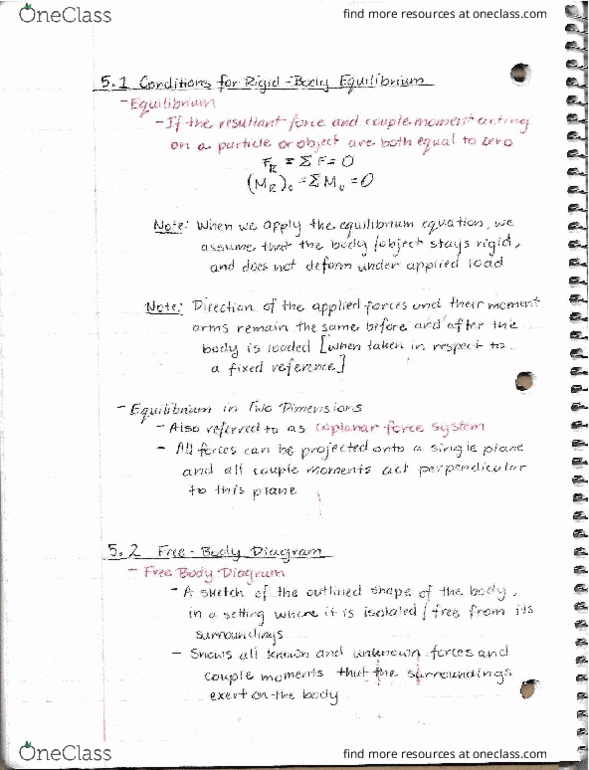 OneClass
find more resources at oneclass.com
5.1 Conditions for Rigid-Body Equilibrium
- Equilibrium
- If the resultant force and couple moment acting
on a particle or object are both equal to zero
F_R = ΣF = 0
(M_R)_o = ΣM_o = 0
Note: When we apply the equilibrium equation, we
assume that the body/object stays rigid,
and does not deform under applied load
Note: Direction of the applied forces and their moment
arms remain the same before and after the
body is loaded [when taken in respect to
a fixed reference]
- Equilibrium in Two Dimensions
- Also referred to as coplanar force system
- All forces can be projected onto a single plane
and all couple moments act perpendicular
to this plane
5.2 Free-Body Diagram
- Free Body Diagram
- A sketch of the outlined shape of the body,
in a setting where it is isolated/free from its
surroundings
- Shows all known and unknown forces and
couple moments that the surroundings
exert on the body
OneClass
find more resources at oneclass.com